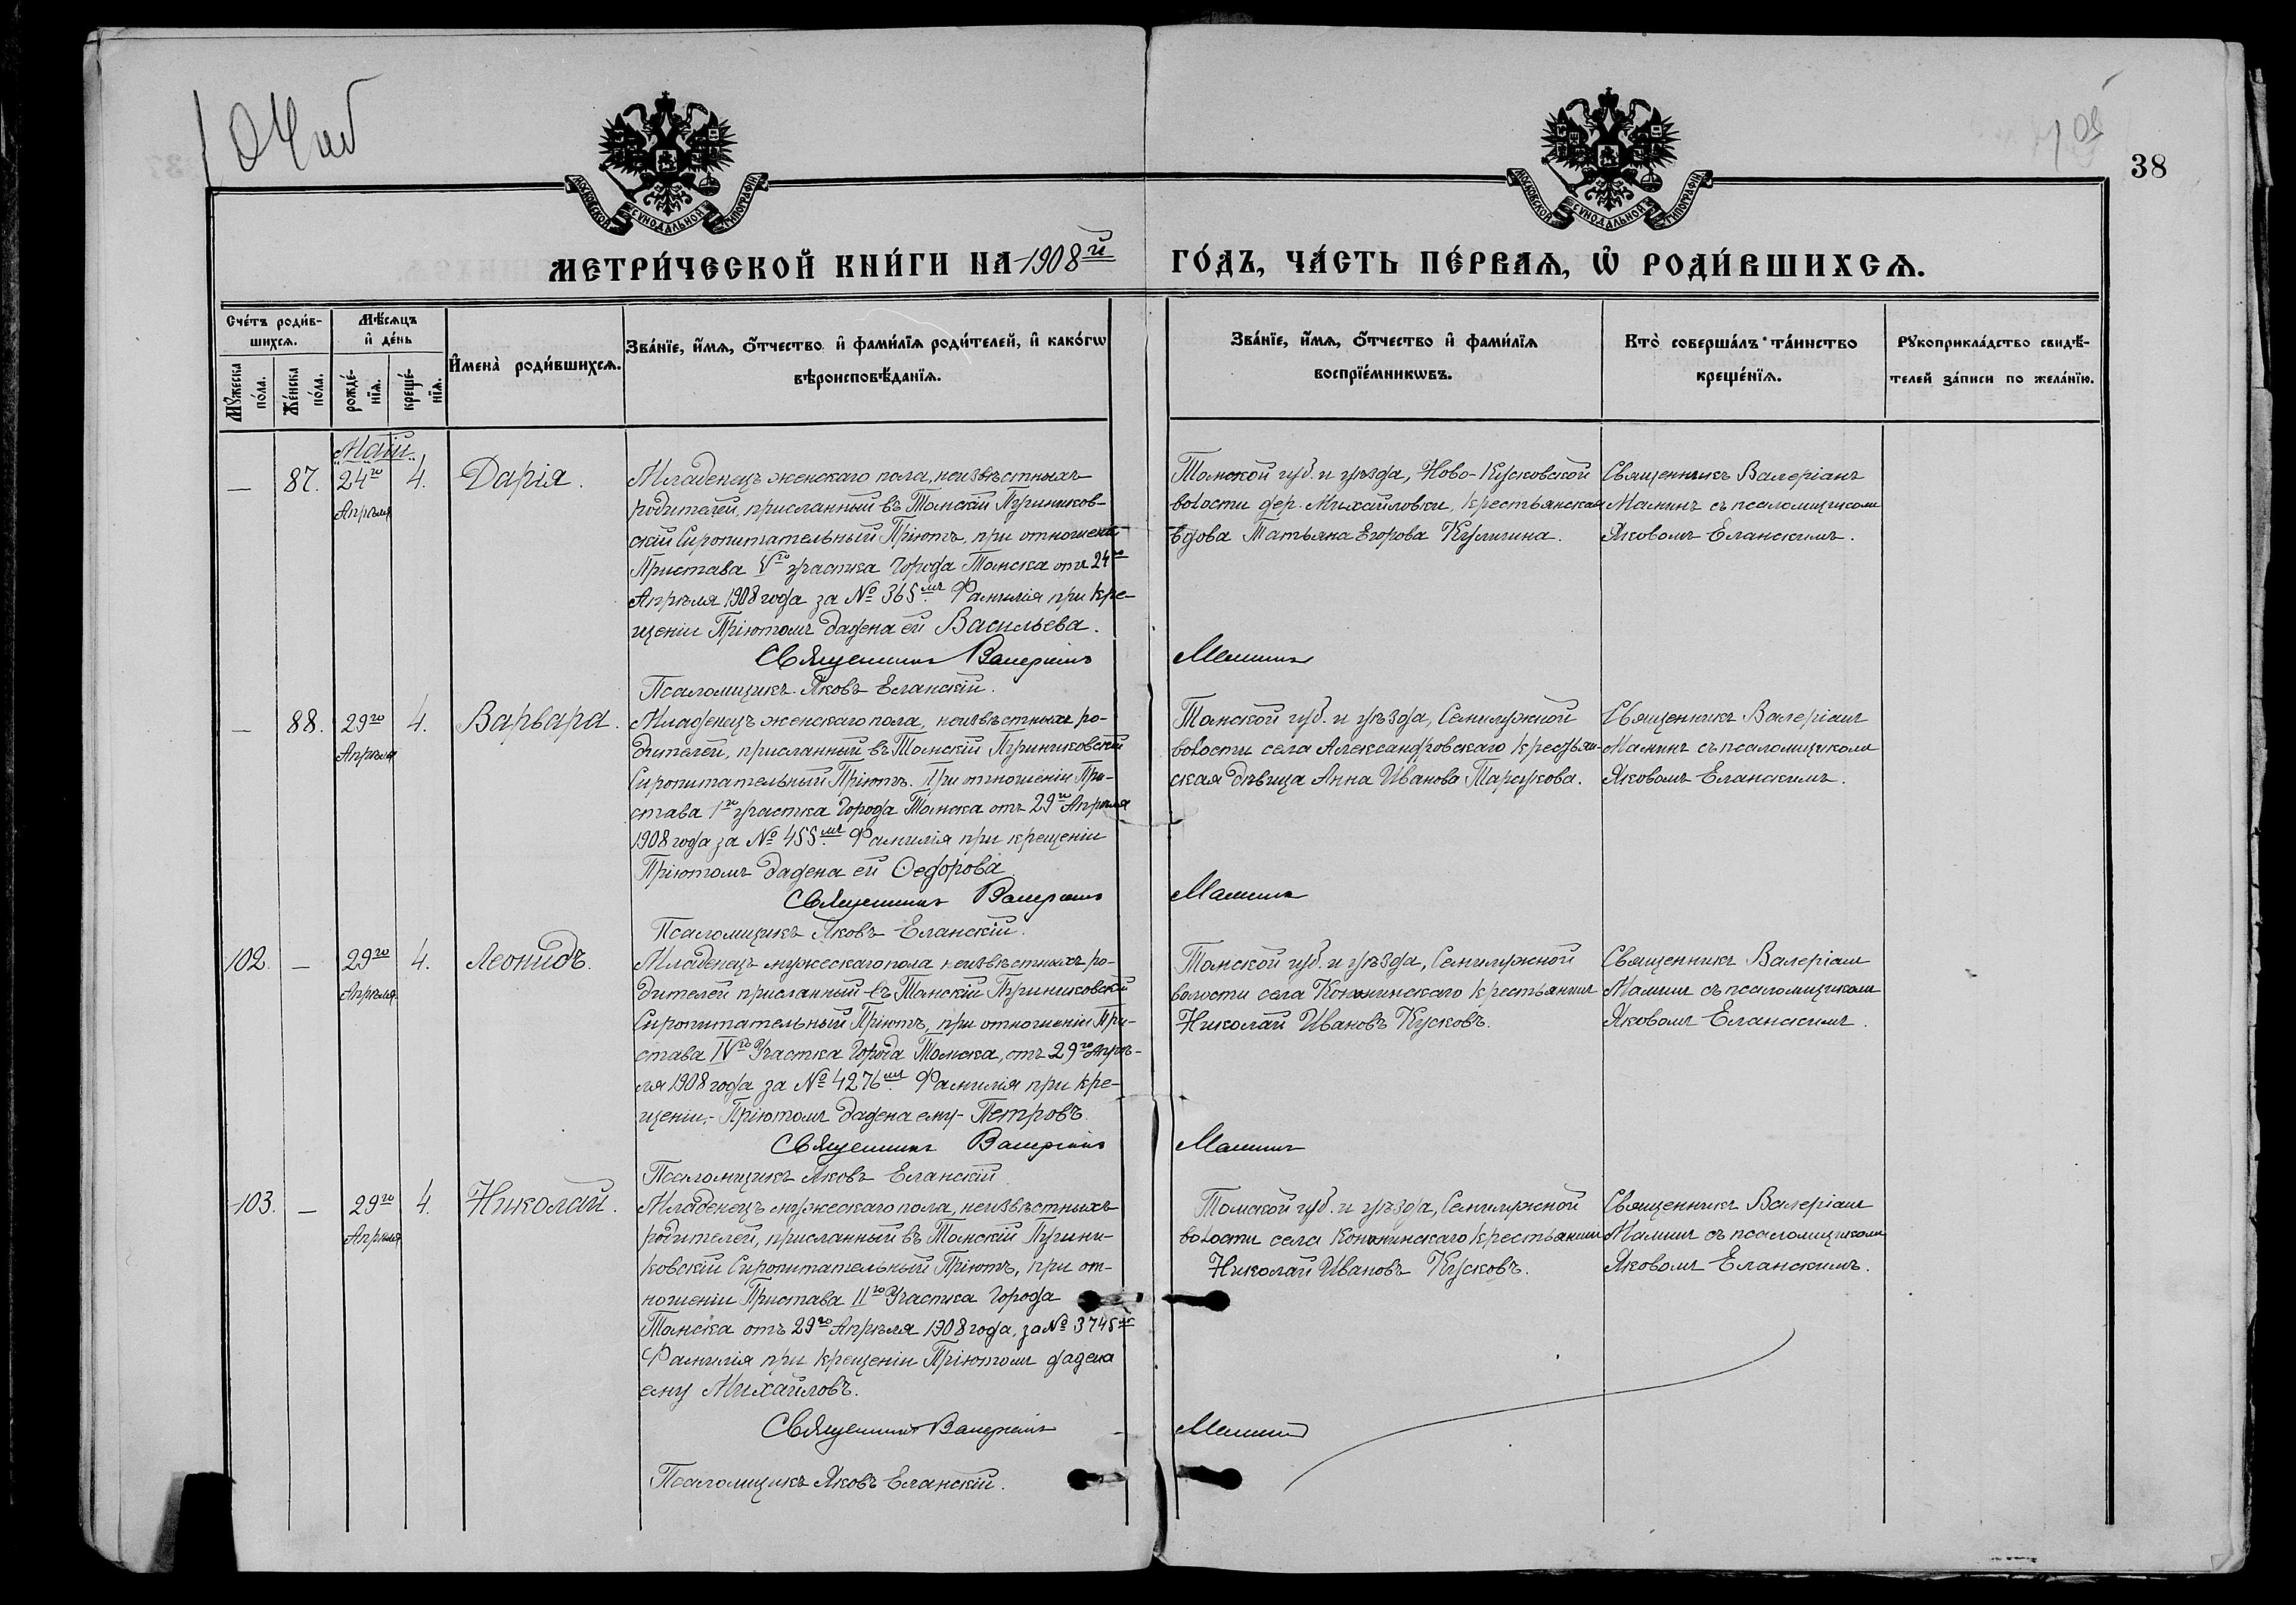 38
МОСКОВСКОЙ СУНОДАЛЬНОЙ ТИПОГРАФІИ
МОСКОВСКОЙ СУНОДАЛЬНОЙ ТИПОГРАФІИ
МЕТРИ́ЧЕСКОЙ КНИ́ГИ НА 1908й ГО́ДЪ, ЧА́СТЬ ПЕ́РВАѦ, Ѡ РОДИ́ВШИХСѦ.
Сче́тъ роди́в-
шихсѧ.
Мꙋжеска по́ла.
Же́нска по́ла.
Мѣ́сѧцъ
и де́нь
рожде́-нїѧ.
креще́-нїѧ.
Имена̀ роди́вшихсѧ.
Зва́нїе, и́мѧ, ѻ́тчество и фами́лїѧ роди́телей, и како́гѡ
вѣроисповѣ́данїѧ.
Зва́нїе, и́мѧ, ѻ́тчество и фами́лїѧ
воспрїе́мникѡвъ.
Кто̀ соверша́лъ та́инство
креще́нїѧ.
Рꙋкоприкла́дство свидѣ́-
телей за́писи по жела́нїю.
Май
— 87. 24го 4. Дарія.
Апрѣля
Младенецъ женскаго пола, неизвѣстныхъ
родителей, присланный въ Томскій Пушников-
скій Сиропитательный Пріютъ, при отношеніи
Пристава Vго участка Города Томска отъ 24го
Апрѣля 1908 года за № 365мъ. Фамилія при кре-
щеніи Пріютомъ дадена ей Васильева.
Священникъ Валеріанъ Мамин
Псаломщикъ Яковъ Еланскій.
Томской губ. и уѣзда, Ново-Кусковской
волости дер. Михайловки, крестьянская
вдова Татьяна Егорова Кулигина.
Священникъ Валеріанъ
Маминъ съ псаломщикомъ
Яковомъ Еланскимъ.
— 88. 29го 4. Варвара.
Апрѣля
Младенецъ женскаго пола, неизвѣстныхъ ро-
дителей, присланный въ Томскій Пушниковскій
Сиропитательный Пріютъ. При отношеніи При-
става 1го участка Города Томска отъ 29го Апрѣля
1908 года за № 455мъ. Фамилія при крещеніи
Пріютомъ дадена ей Ѳедорова
Священникъ Валеріанъ Маминъ
Псаломщикъ Яковъ Еланскій.
Томской губ. и уѣзда, Семилужной
волости села Александровскаго крестьян-
ская дѣвица Анна Иванова
Священникъ Валеріанъ
Маминъ съ псаломщикомъ
Яковомъ Еланскимъ.
102. — 29го 4. Леонидъ.
Апрѣля
Младенецъ мужескаго пола неизвѣстныхъ ро-
дителей присланный въ Томскій Пушниковскій
Сиропитательный Пріютъ, при отношеніи При-
става IVго Участка Города Томска, отъ 29го Апрѣ-
ля 1908 года за № 4276мъ. Фамилія при кре-
щеніи,- Пріютомъ дадена ему- Петровъ.
Священникъ Валеріанъ Маминъ
Псаломщикъ Яковъ Еланскій
Томской губ. и уѣзда, Семилужной
волости села Кононинскаго крестьянинъ
Николай Ивановъ Кусковъ.
Священникъ Валеріанъ
Маминъ съ псаломщикомъ
Яковомъ Еланскимъ.
103. — 29го 4. Николай.
Апрѣля
Младенецъ мужескаго пола, неизвѣстныхъ
родителей, присланный въ Томскій Пушни-
ковскій Сиропитательный Пріютъ, при от-
ношеніи Пристава IIго Участка Города
Томска отъ 29го Апрѣля 1908 года, за № 3745мъ
Фамилія при крещеніи Пріютомъ дадена
ему Михайловъ.
Священникъ Валеріанъ Маминъ
Псаломщикъ Яковъ Еланскій.
Томской губ. и уѣзда, Семилужной
волости села Кононинскаго крестьянинъ
Николай Ивановъ Кусковъ.
Священникъ Валеріанъ
Маминъ съ псаломщикомъ
Яковомъ Еланскимъ.